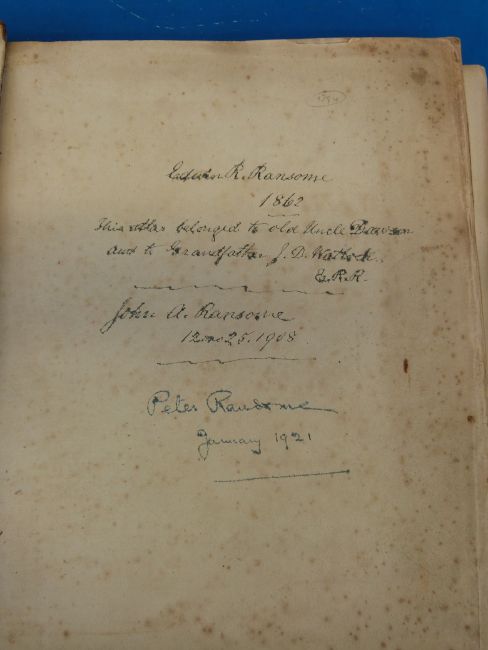 Edwin R. Ransome
1862
This atlas belonged to old Uncle Dawson
and to Grandfather J. D.
E. R. R.
John A. Ransome
12mo 25. 1908
Peter Ransome
January 1921